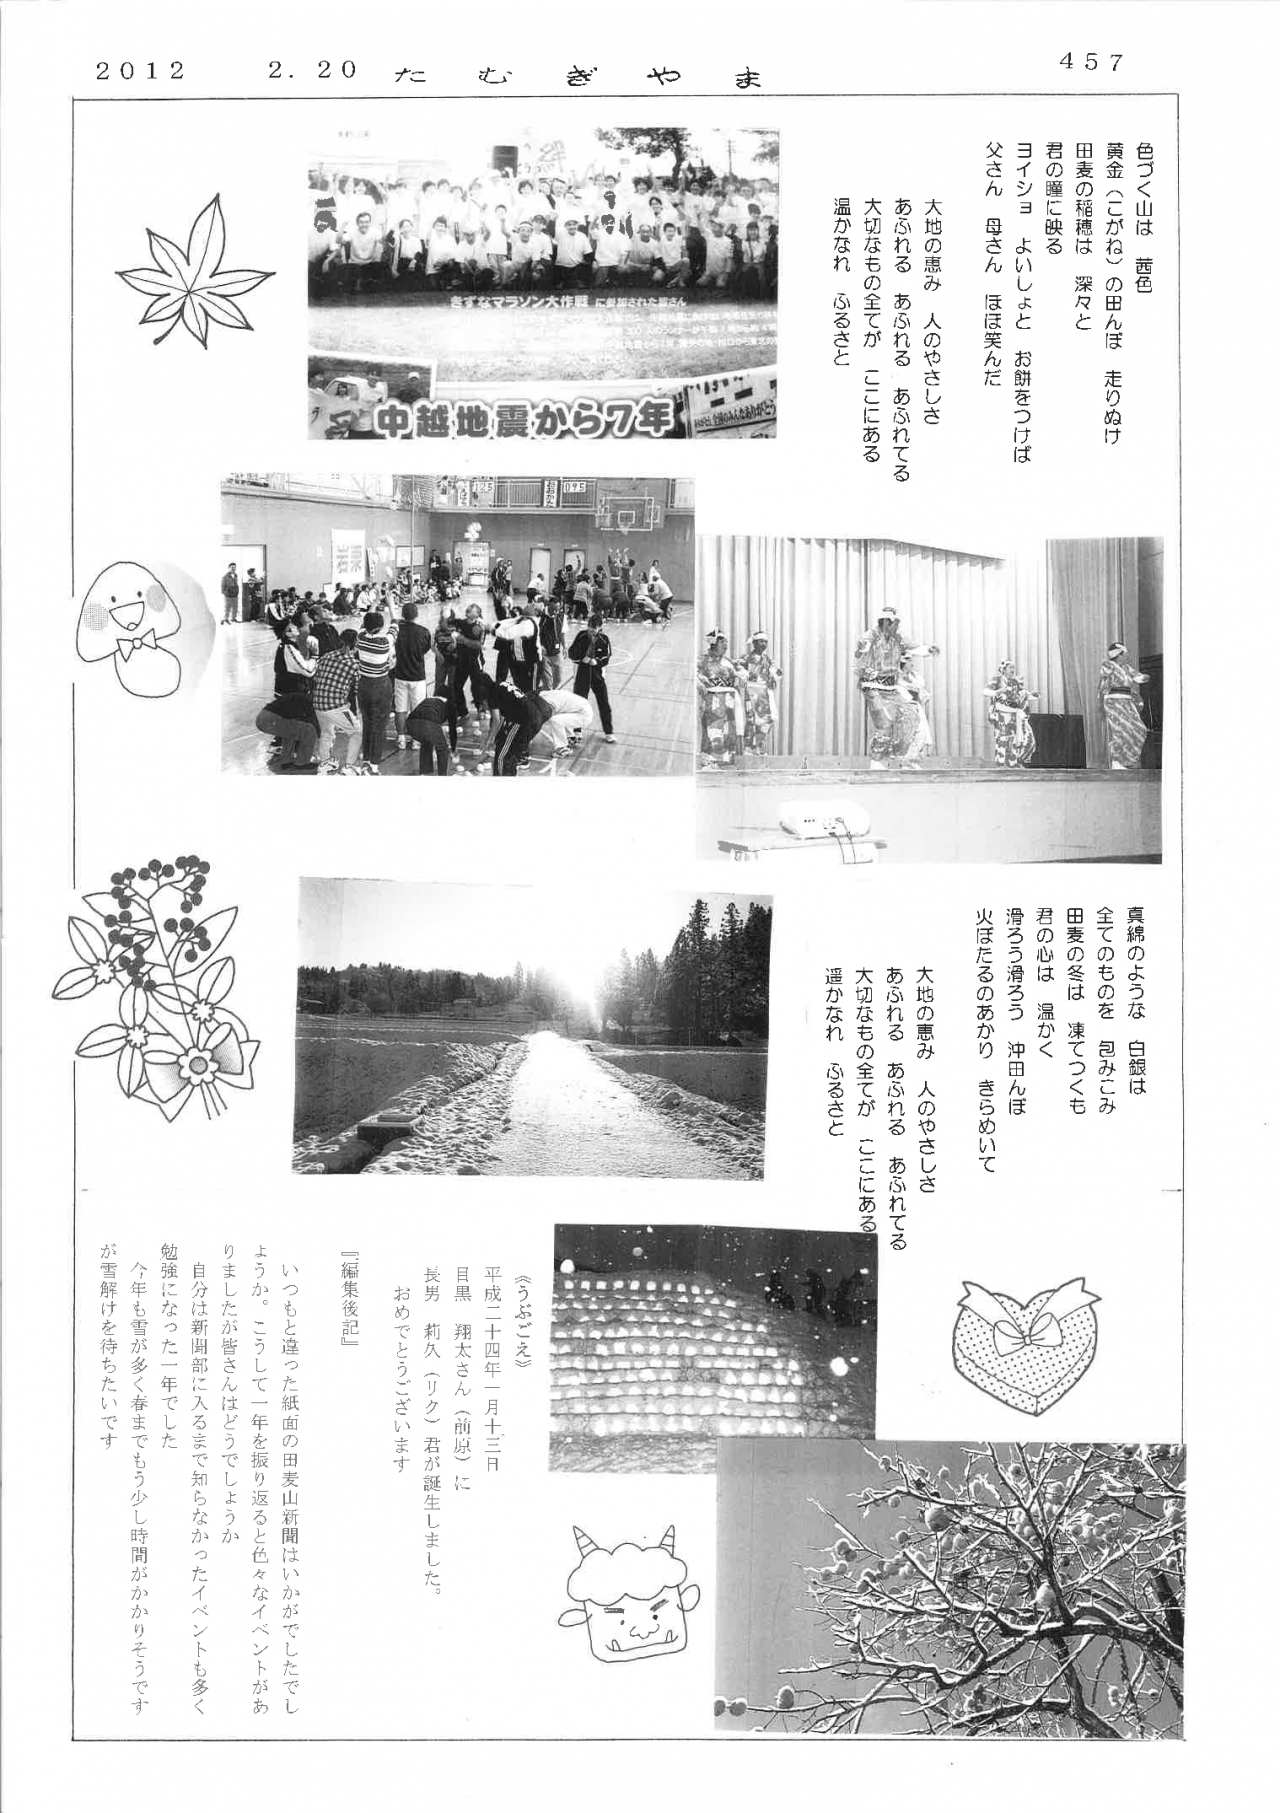 2012 2.20 たむぎやま 457
色づく山は 茜色
黄金(こがね)の田んぼ 走りぬけ
田麦の稲穂は 深々と
君の瞳に映る
ヨイショ よいしょと お餅をつけば
父さん 母さん ほほ笑んだ
大地の恵み 人のやさしさ
あふれる あふれる あふれてる
大切なもの全てが ここにある
温かなれ ふるさと
きずなマラソン大作戦 に参加された皆さん
中越地震から7年
岩東
095
真綿のような 白銀は
全てのものを 包みこみ
田麦の冬は 凍てつくも
君の心は 温かく
滑ろう滑ろう 沖田んぼ
火ぼたるのあかり きらめいて
大地の恵み 人のやさしさ
あふれる あふれる あふれてる
大切なもの全てが ここにある
遥かなれ ふるさと
《うぶごえ》
平成二十四年一月十三日
目黒 翔太さん(前原)に
長男 莉久(リク)君が誕生しました。
おめでとうございます
『編集後記』
いつもと違った紙面の田麦山新聞はいかがでしたでし
ょうか。こうして一年を振り返ると色々なイベントがあ
りましたが皆さんはどうでしょうか
自分は新聞部に入るまで知らなかったイベントも多く
勉強になった一年でした
今年も雪が多く春までもう少し時間がかかりそうです
が雪解けを待ちたいです